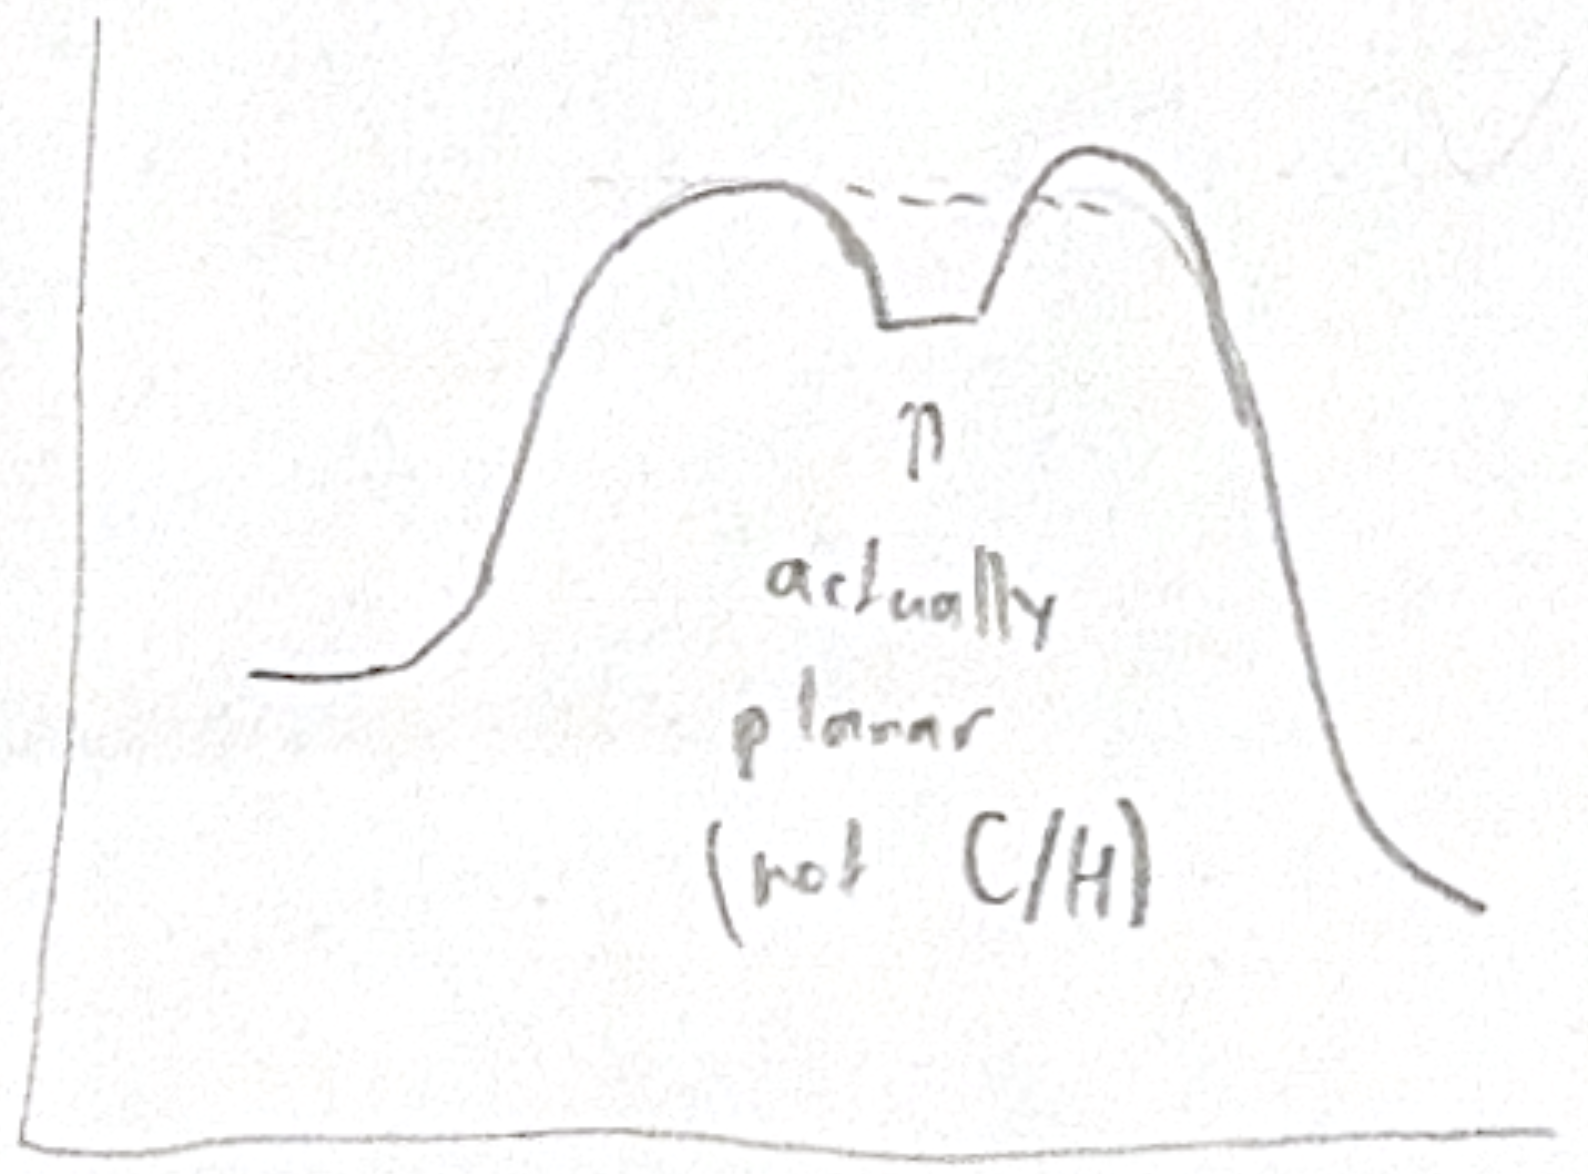 actually
planar
(not C/H)